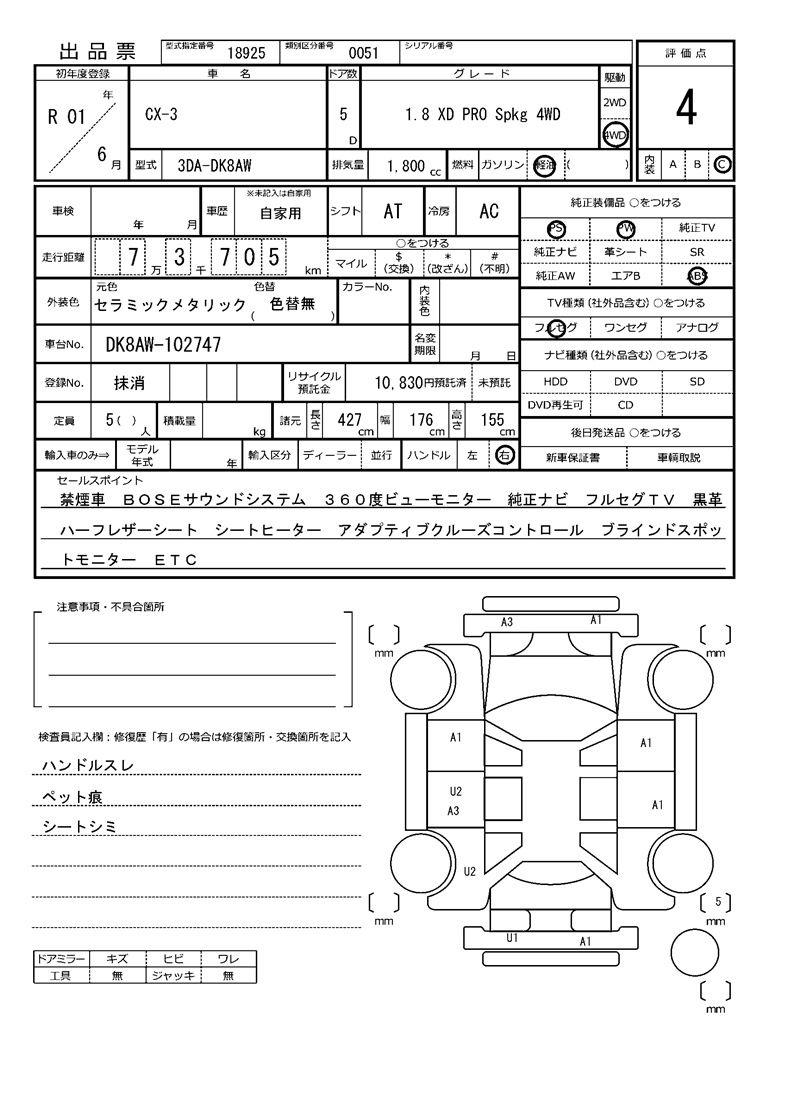 出品票 型式指定番号 18925 類別区分番号 0051 シリアル番号
評価点
初年度登録 車名 ドア数 グレード 駆動
R 01 年 6 月 CX-3 5 D 1.8 XD PRO Spkg 4WD 2WD 4WD 4
型式 3DA-DK8AW 排気量 1,800 cc 燃料 ガソリン 軽油 ( ) 内装 A B C
車検 年 月 車歴 ※未記入は自家用 自家用 シフト AT 冷房 AC
走行距離 7 万 3 千 7 0 5 km ○をつける
マイル $(交換) *(改ざん) #(不明)
外装色 元色 セラミックメタリック 色替 ( 色替無 ) カラーNo. 内装色
車台No. DK8AW-102747 名変期限 月 日
登録No. 抹消 リサイクル預託金 10,830円預託済 未預託
定員 5 ( ) 人 積載量 kg 諸元 長さ 427 cm 幅 176 cm 高さ 155 cm
輸入車のみ⇒ モデル年式 年 輸入区分 ディーラー 並行 ハンドル 左 右
純正装備品 ○をつける
PS PW 純正TV
純正ナビ 革シート SR
純正AW エアB ABS
TV種類 (社外品含む) ○をつける
フルセグ ワンセグ アナログ
ナビ種類 (社外品含む) ○をつける
HDD DVD SD
DVD再生可 CD
後日発送品 ○をつける
新車保証書 車輌取説
セールスポイント
禁煙車 BOSEサウンドシステム 360度ビューモニター 純正ナビ フルセグTV 黒革
ハーフレザーシート シートヒーター アダプティブクルーズコントロール ブラインドスポッ
トモニター ETC
注意事項・不具合箇所
検査員記入欄:修復歴「有」の場合は修復箇所・交換箇所を記入
ハンドルスレ
ペット痕
シートシミ
ドアミラー キズ ヒビ ワレ
工具 無 ジャッキ 無
A3 A1
mm mm
A1 A1
U2
A3 A1
U2
mm 5 mm
U1 A1
mm